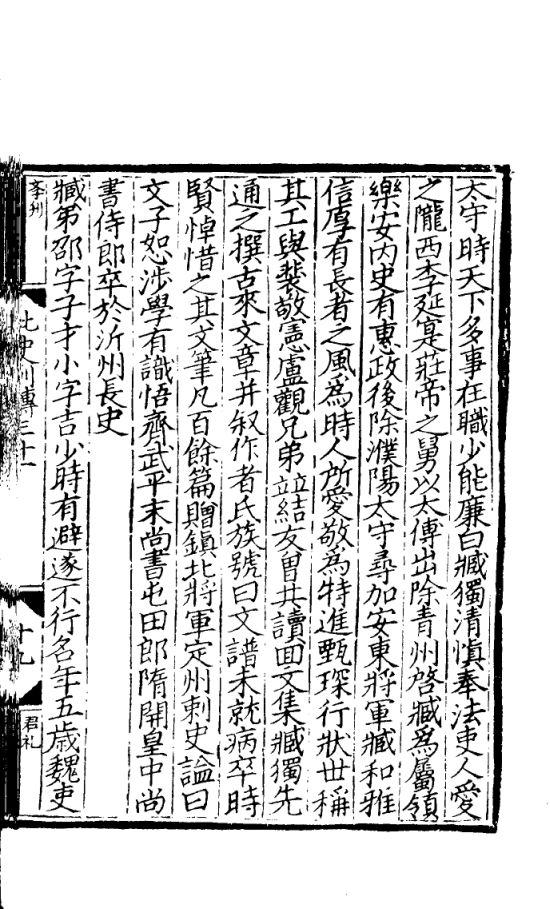 太守時天下多事在職少能廉白臧獨清慎奉法吏人愛
之隴西李延寔莊帝之舅以太傅出除青州啓臧爲屬領
樂安內史有惠政後除濮陽太守尋加安東將軍臧和雅
信厚有長者之風爲時人所愛敬爲特進甄琛行狀世稱
其工與裴敬憲盧觀兄弟並結友曾共讀回文集臧獨先
通之撰古來文章并叙作者氏族號曰文譜未就病卒時
賢悼惜之其文筆凡百餘篇贈鎮北將軍定州刺史謚曰
文子恕涉學有識悟齊武平末尚書屯田郎隋開皇中尚
書侍郎卒於沂州長史
臧弟邵字子才小字吉少時有避遂不行名年五歲魏吏
北史列傳三十一
十九
君礼